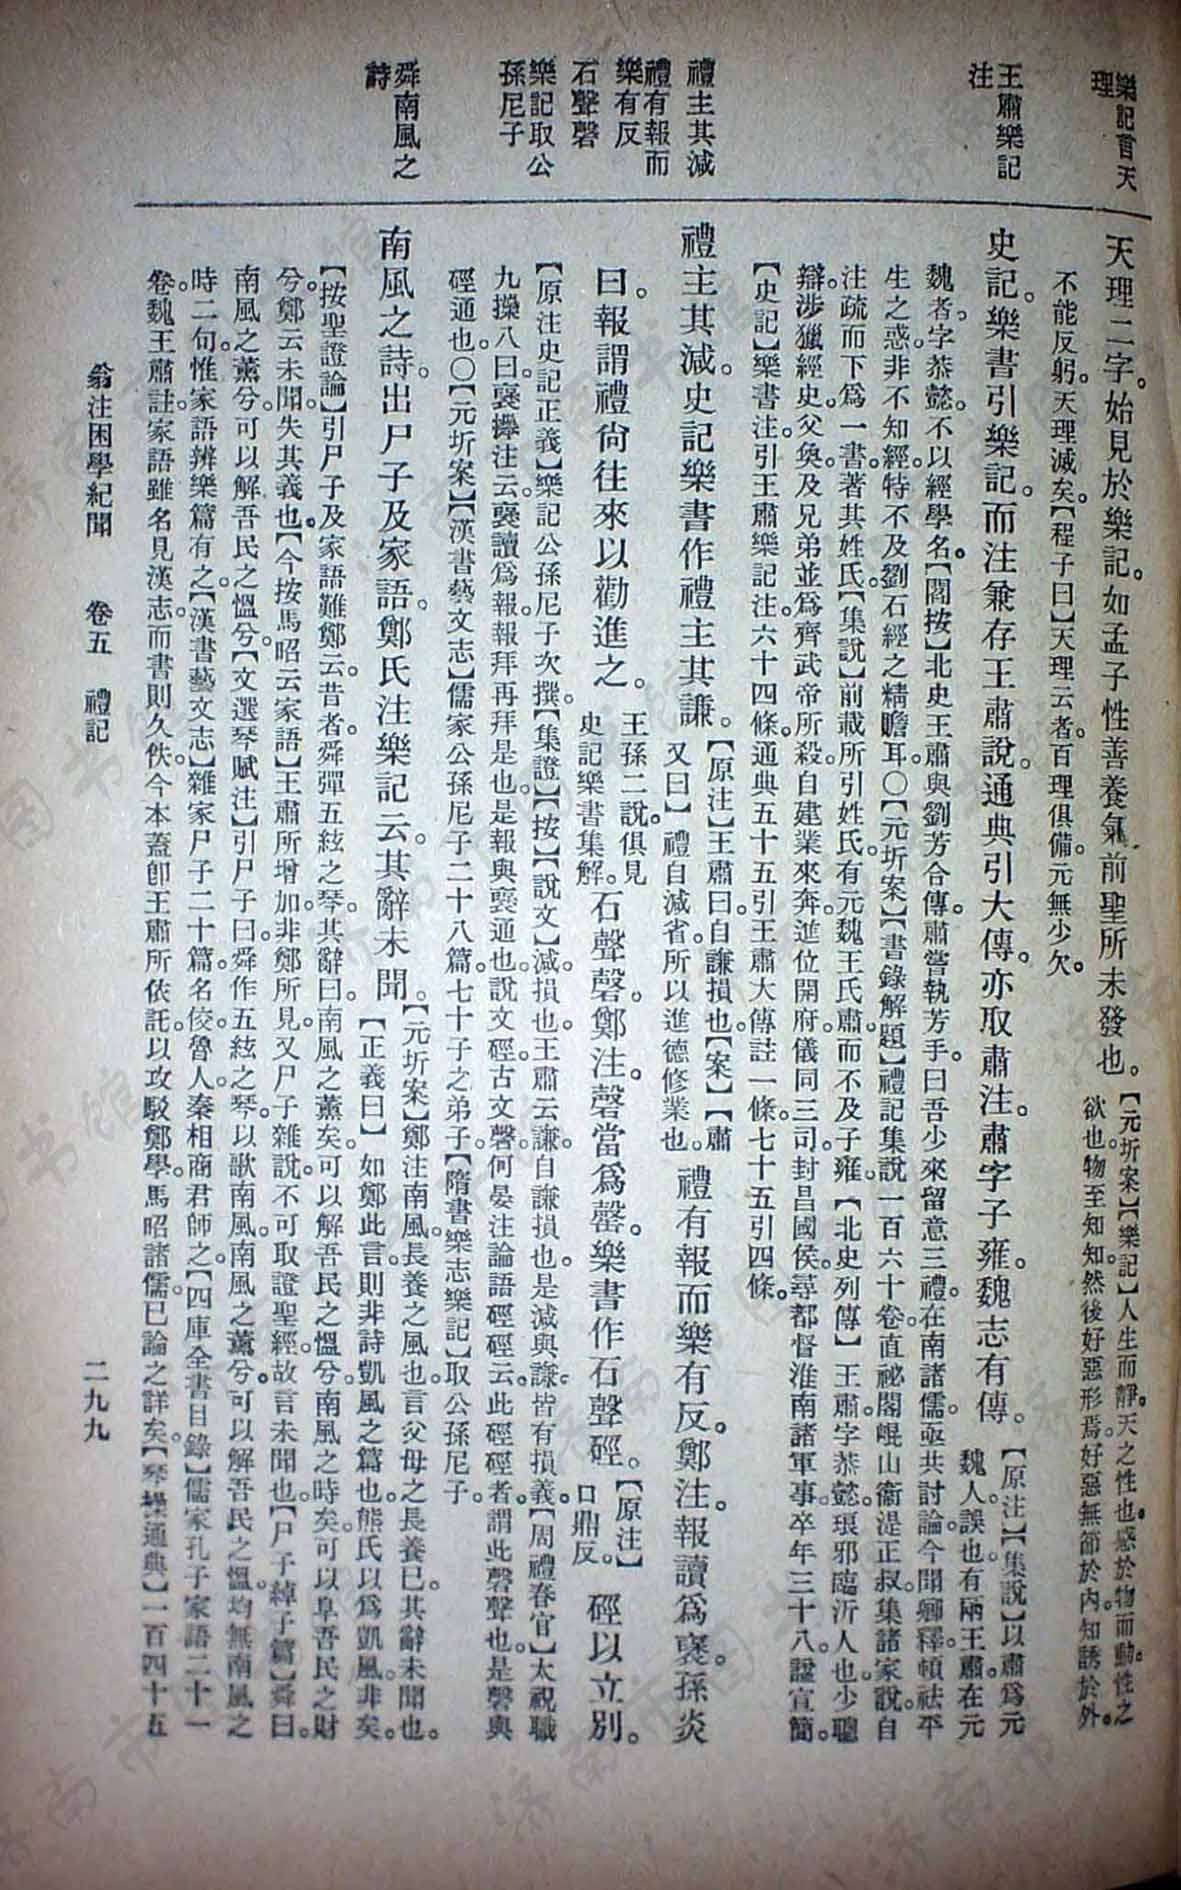 樂記言天
理
王肅樂記
注
禮主其減
禮有報而
樂有反
石聲磬
樂記取公
孫尼子
舜南風之
詩
天理二字。始見於樂記。如孟子性善養氣。前聖所未發也。
【元圻案】【樂記】人生而靜。天之性也。感於物而動。性之
欲也。物至知知。然後好惡形焉。好惡無節於內。知誘於外。
不能反躬。天理滅矣。【程子曰】天理云者。百理俱備。元無少欠。
史記。樂書引樂記。而注兼存王肅說。通典引大傳。亦取肅注。肅字子雍。魏志有傳。
【原注】【集說】以肅爲元
魏人。誤也。有兩王肅。在元
魏者。字恭懿。不以經學名。【閻按】北史王肅與劉芳合傳。肅嘗執芳手。曰吾少來留意三禮。在南諸儒。亟共討論。今聞卿釋。頓祛平
生之惑。非不知經。特不及劉石經之精贍耳。〇【元圻案】【書錄解題】禮記集說一百六十卷。直祕閣崐山衞湜正叔。集諸家說。自
注疏而下爲一書。著其姓氏。【集說】前載所引姓氏。有元魏王氏肅。而不及子雍。【北史列傳】王肅。字恭懿。琅邪臨沂人也。少聰
辯。涉獵經史。父奐。及兄弟並爲齊武帝所殺。自建業來奔。進位開府。儀同三司。封昌國侯。尋都督淮南諸軍事。卒年三十八。諡宣簡。
【史記】樂書注。引王肅樂記注。六十四條。通典五十五引王肅大傳註一條。七十五引四條。
禮主其減。史記樂書作禮主其謙。
【原注】王肅曰。自謙損也。【案】【肅
又曰】禮自減省。所以進德修業也。
禮有報而樂有反。鄭注。報讀爲褒。孫炎
曰。報謂禮尚往來以勸進之。
王孫二說。俱見
史記樂書集解。
石聲磬。鄭注。磬當爲罄。樂書作石聲硜。
【原注】
口鼎反。
硜以立別。
【原注史記正義】樂記公孫尼子次撰。【集證】【按】【說文】減。損也。王肅云。謙。自謙損也。是減與謙。皆有損義。【周禮春官】太祝職
九擽八曰。褒擽注云。褒讀爲報。報拜再拜是也。是報與褒通也。說文硜。古文磬。何晏注論語硜硜云。此硜硜者。謂此磬聲也。是磬與
硜通也。〇【元圻案】【漢書藝文志】儒家公孫尼子二十八篇。七十子之弟子。【隋書樂志樂記】取公孫尼子。
南風之詩。出尸子及家語。鄭氏注樂記云。其辭未聞。
【元圻案】鄭注南風。長養之風也。言父母之長養已。其辭未聞也。
【正義曰】如鄭此言。則非詩凱風之篇也。熊氏以爲凱風。非矣。
【按聖證論】引尸子及家語難鄭云。昔者。舜彈五絃之琴。其辭曰。南風之薰矣。可以解吾民之慍兮。南風之時矣。可以阜吾民之財
兮。鄭云未聞。失其義也。【今按馬昭云家語】王肅所增加。非鄭所見。又尸子雜說。不可取證聖經。故言未聞也。【尸子綽子篇】舜曰。
南風之薰兮。可以解吾民之慍兮。【文選琴賦注】引尸子曰。舜作五絃之琴。以歌南風。南風之薰兮。可以解吾民之慍。均無南風之
時二句。惟家語辨樂篇有之。【漢書藝文志】雜家尸子二十篇。名佼。魯人。秦相商君師之。【四庫全書目錄】儒家孔子家語二十一
卷。魏王肅註。家語雖名見漢志。而書則久佚。今本蓋卽王肅所依託。以攻駁鄭學。馬昭諸儒。已論之詳矣。【琴操通典】一百四十五
翁注困學紀聞 卷五 禮記 二九九